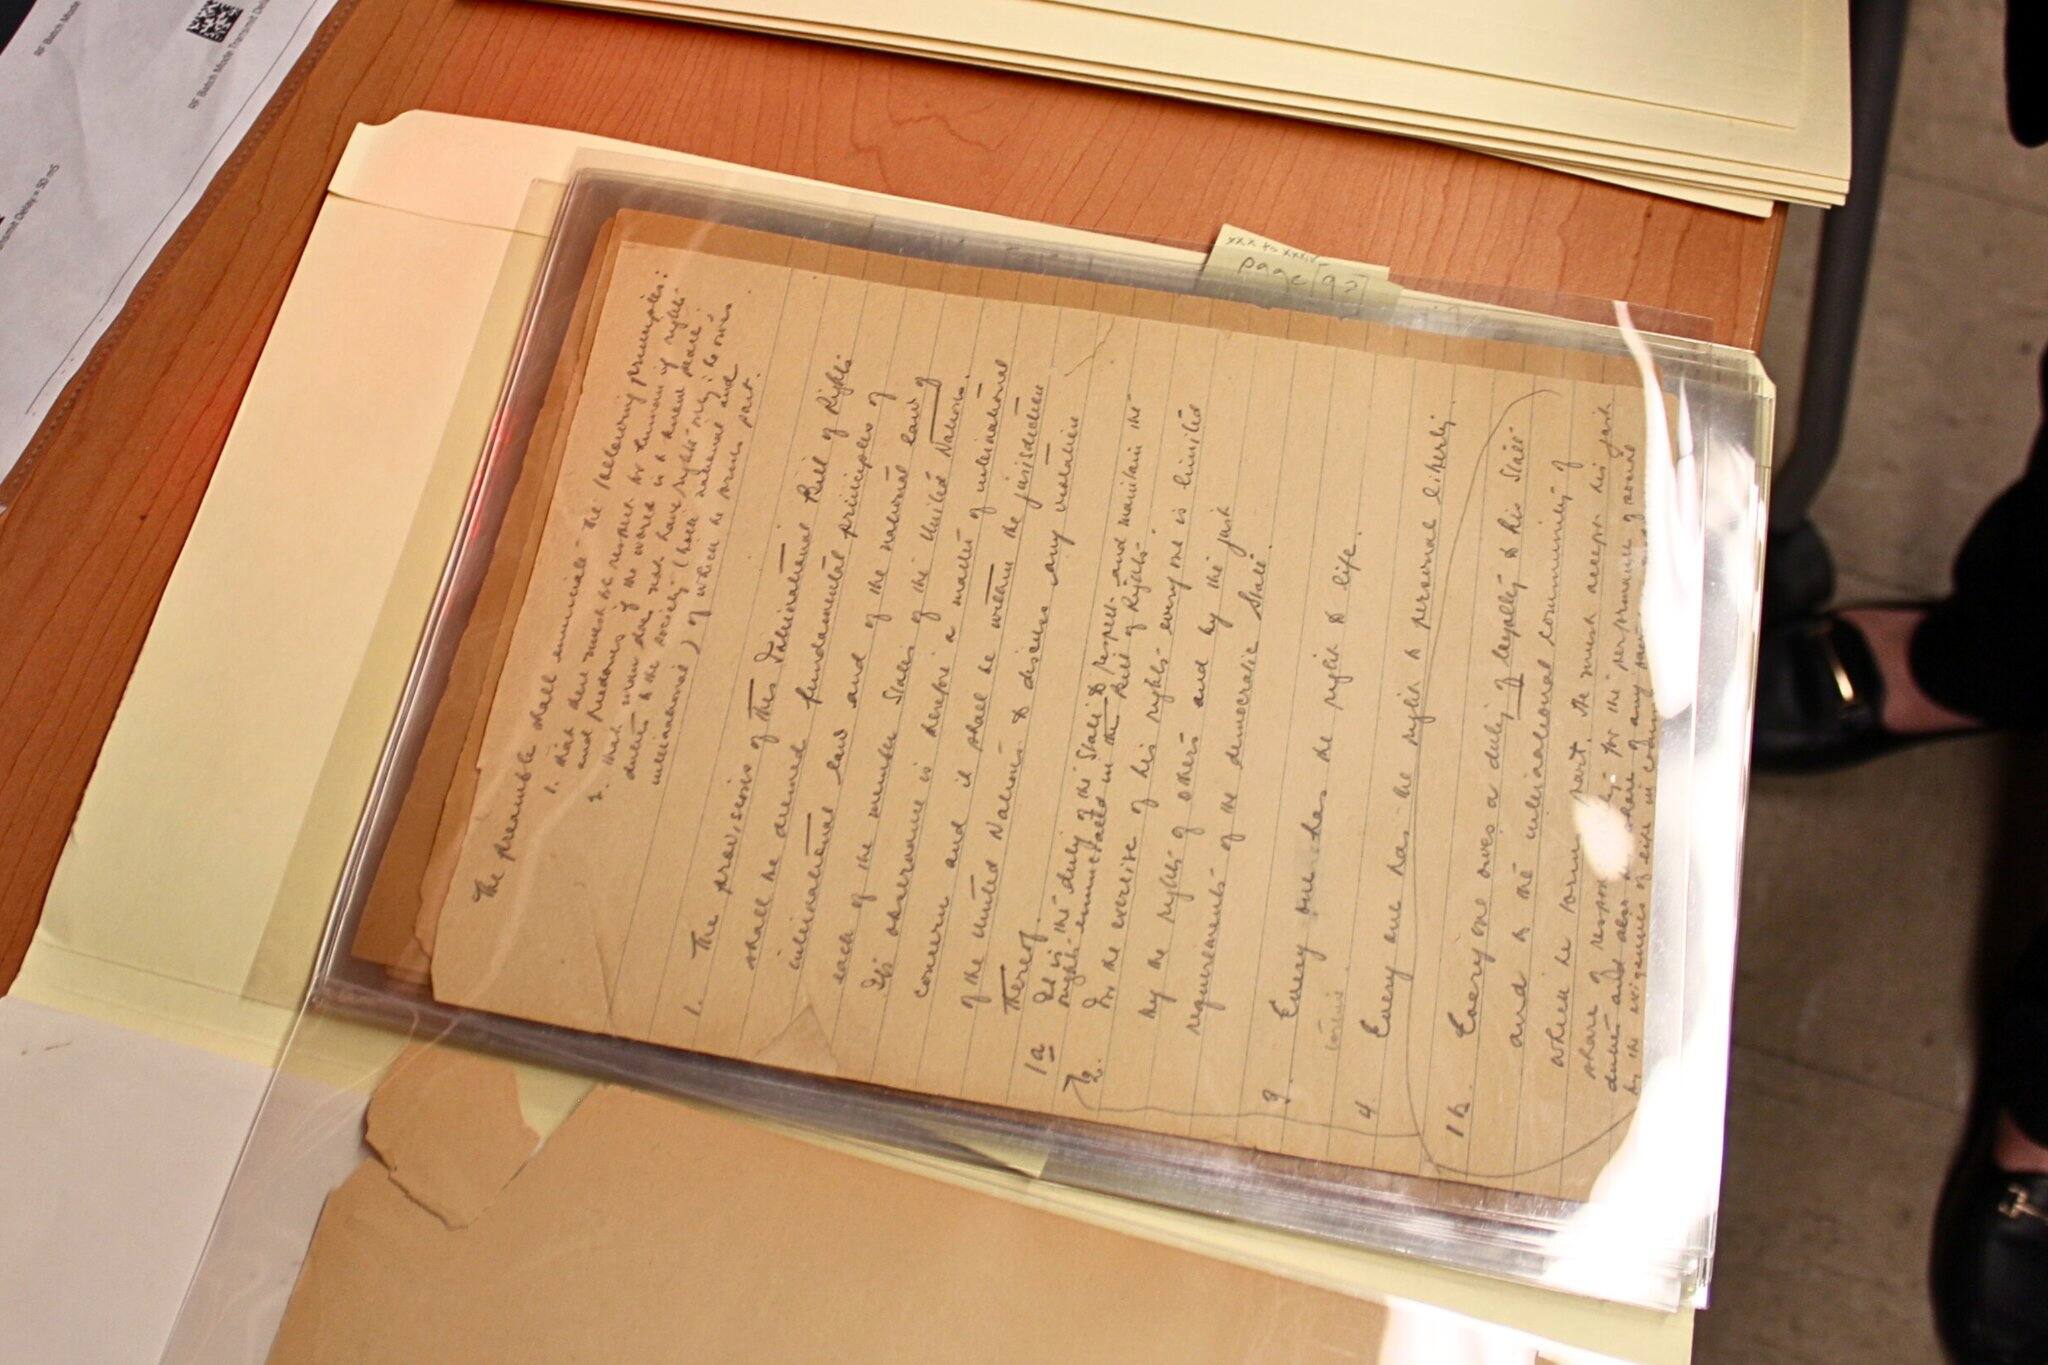 The preamble shall enunciate the following principles:
1. that there must be respect for human rights
and freedoms if the world is to have peace;
2. that man does not have rights only; he owes
duties to the society (both national and
international) of which he forms part.
1. The provisions of this International Bill of Rights
shall be deemed fundamental principles of
international law and of the national law of
each of the member States of the United Nations.
Its observance is therefore a matter of international
concern and it shall be within the jurisdiction
of the United Nations to discuss any violation
thereof.
1a It is the duty of the State to respect and maintain the
rights enunciated in this Bill of Rights.
2. In the exercise of his rights every one is limited
by the rights of others and by the just
requirements of the democratic State.
3. Every one has the right to life.
4. Every one has the right to personal liberty.
1b. Every one owes a duty of loyalty to his State
and to the international community of
which he forms part. He must accept his just
share of responsibility for the performance of social
duties and also his share of any
by the exigencies of life in
xxx to xxxiv
page
RF Batch Mode
RF Batch Mode Transmit
Delay = 50 mS